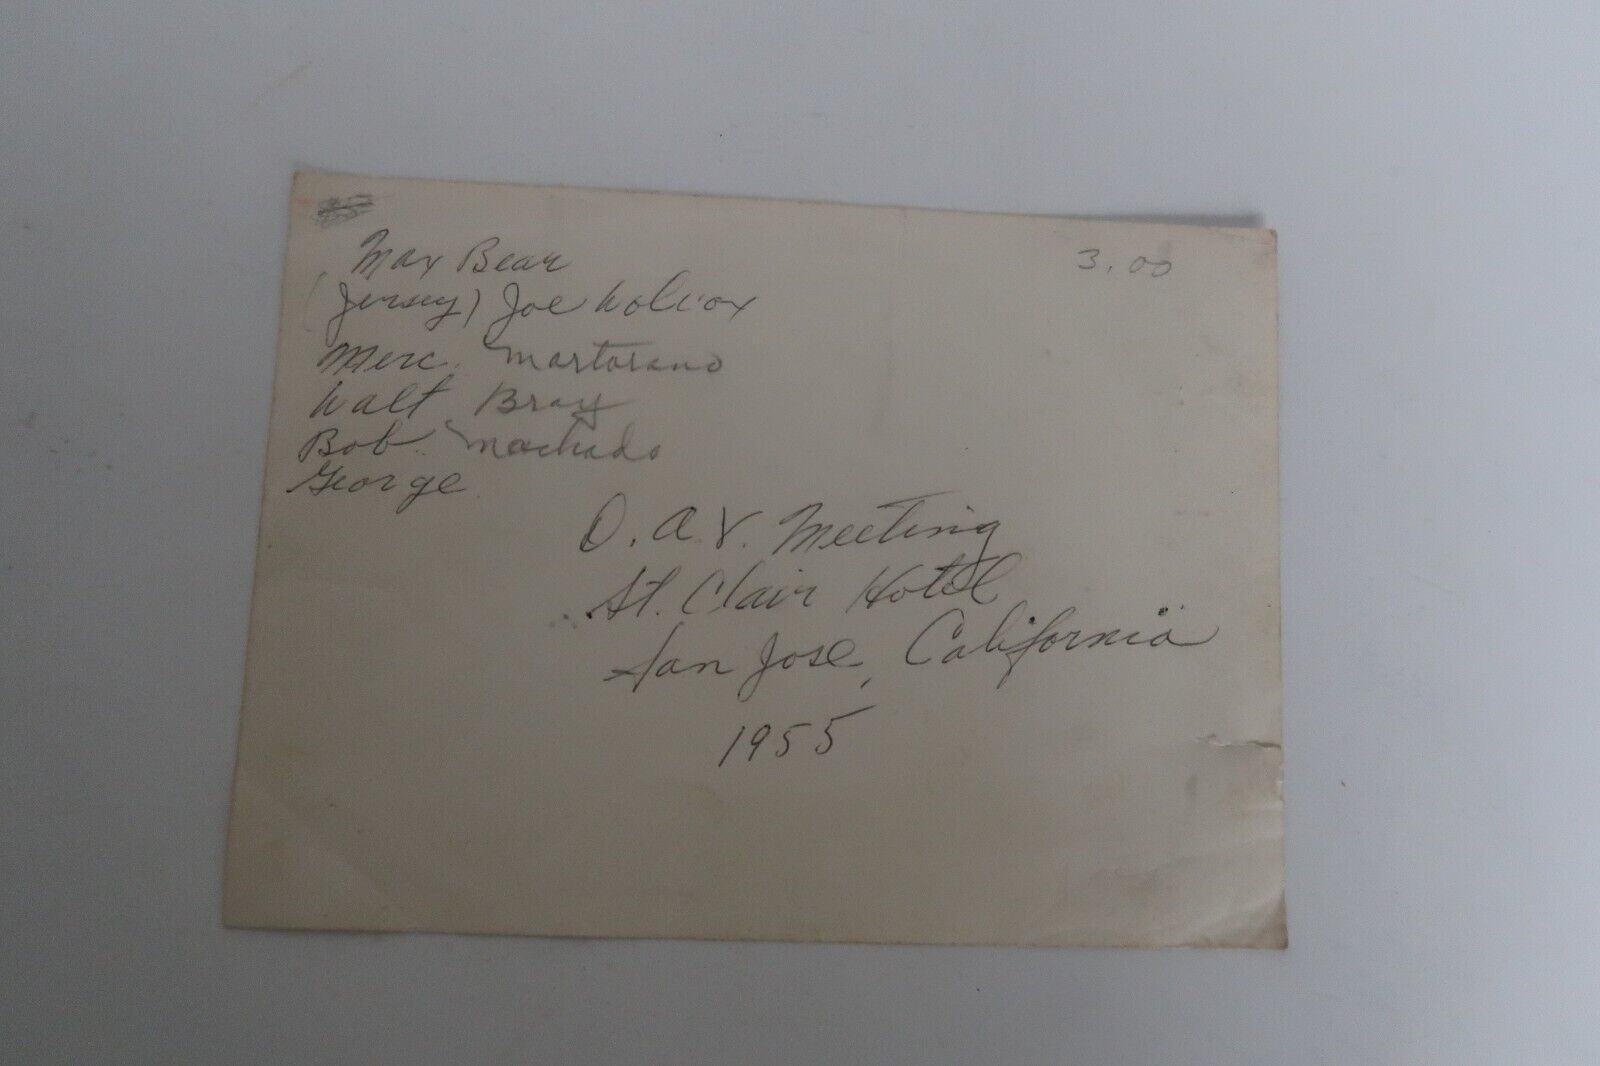 Max Bear
3.00
(Jersey) Joe Wolcox
Merc. Martorano
Walt Bray
Bob. Machado
George
D.A.V. Meeting
St. Clair Hotel
San Jose, California
1955